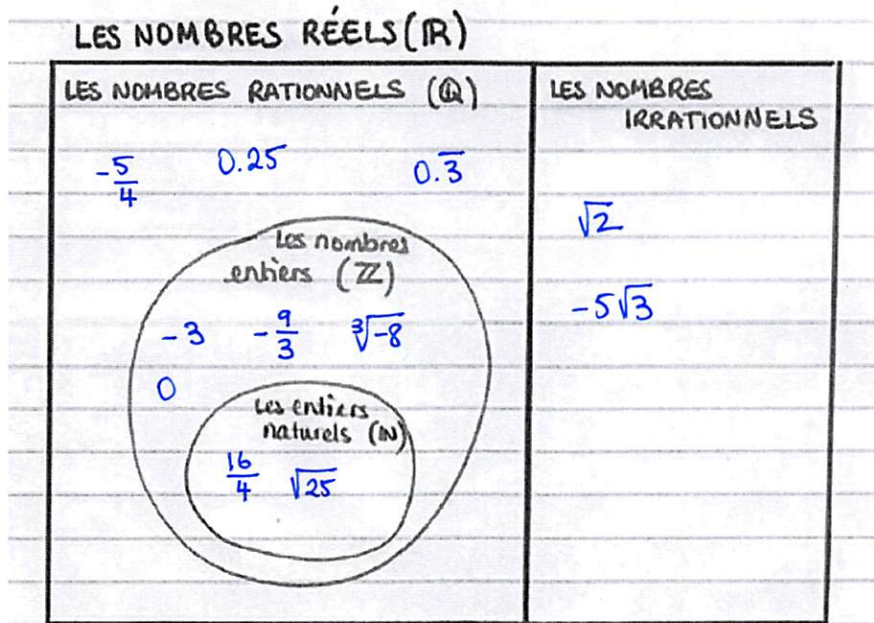 LES NOMBRES RÉELS (ℝ)
LES NOMBRES RATIONNELS (ℚ)
-5/4 0.25 0.3̅
Les nombres
entiers (ℤ)
-3 -9/3 ∛-8
0
Les entiers
naturels (ℕ)
16/4 √25
LES NOMBRES
IRRATIONNELS
√2
-5√3